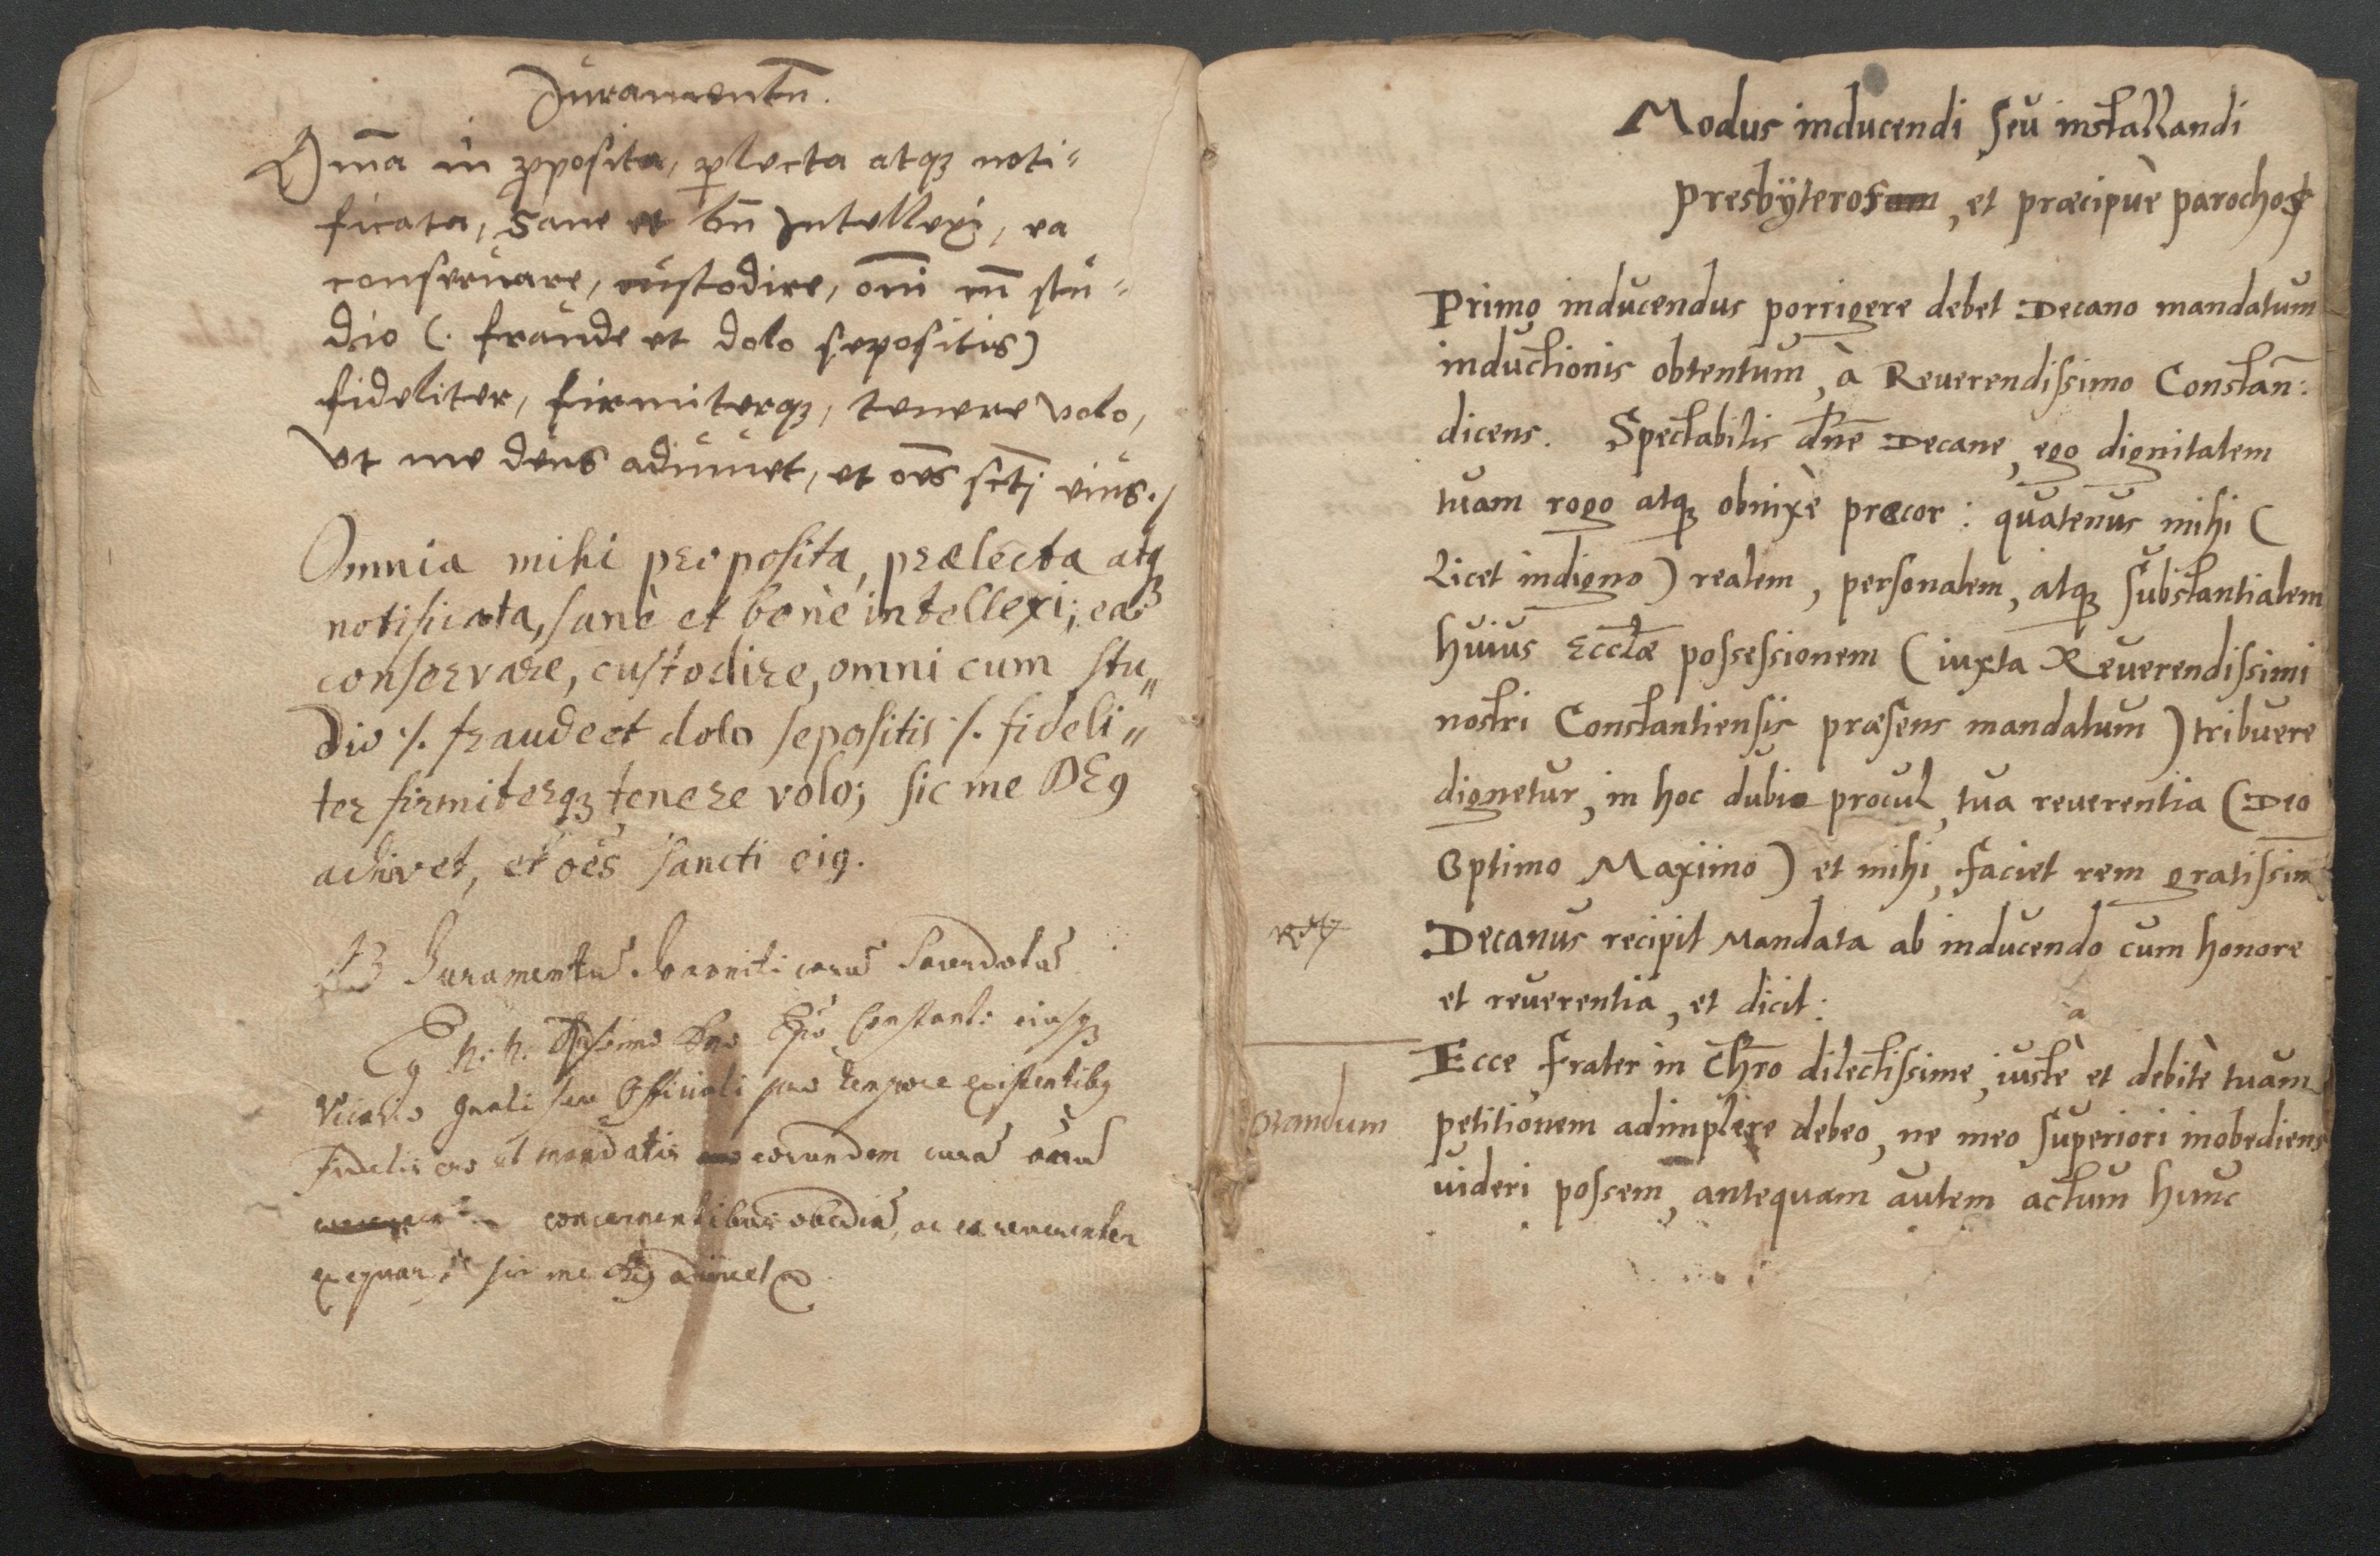 Juramentu̅.
Om̅a m̅ ꝓposita, p̱lecta atqꝫ noti⸗
ficata, Sane et bn̅ Intellexi, ea
conseruare, custodire, om̅i cu̅ stu⸗
dio (. fraude et dolo sepositis)
fideliter, firmiterqꝫ, tenere volo,
Vt me deus adiuuet, et oe̅s sct̅i eius./
Omnia mihi proposita, prælecta atqꝫ
notificata, sanè et benè intellexi; ea
conservare, custodire, omni cum stu„
dio ·/. fraude et dolo sepositis ·/. fideli„
ter firmiterqꝫ tenere volo; sic me DEꝯ
adiuvet, et oe̅s sancti eiꝯ.
Juramentu̅ Sacerdotu̅
Eg N: N: Dno Epo Constant: eiusqꝫ
Vicario gnali seu Officiali pro tempore existentibꝯ
Fidelis ero et mandatis eorundem cura̅
concernentibus obedia̅, ac ea reuerenter
exequar, sic me adiuuet
Modus inducendi seu installandi
presbÿteros, et præcipuè parochos
Primo inducendus porrigere debet Decano mandatum
inductionis obtentum, à Reuerendissimo Constan̅:
dicens. Spectabilis dn̅e Decane, ego dignitatem
tuam rogo atqꝫ obnixè præcor: quatenus mihi (
Licet indigno) realem, personalem, atqꝫ substantialem
huius Eccl̅æ possessionem (iuxta Reuerendissimi
nostri Constantiensis præsens mandatum) tribuere
dignetur, in hoc dubio procul, tua reuerentia (Deo
Optimo Maximo) et mihi, faciet rem gratissim
Decanus recipit Mandata ab inducendo cum honore
et reuerentia, et dicit:
a
Ecce frater in Chr̅o dilectissime, iustè et debitè tuam
orandum petitionem adimplere debeo, ne meo superiori inobediens
uideri possem, antequam autem actum hunc